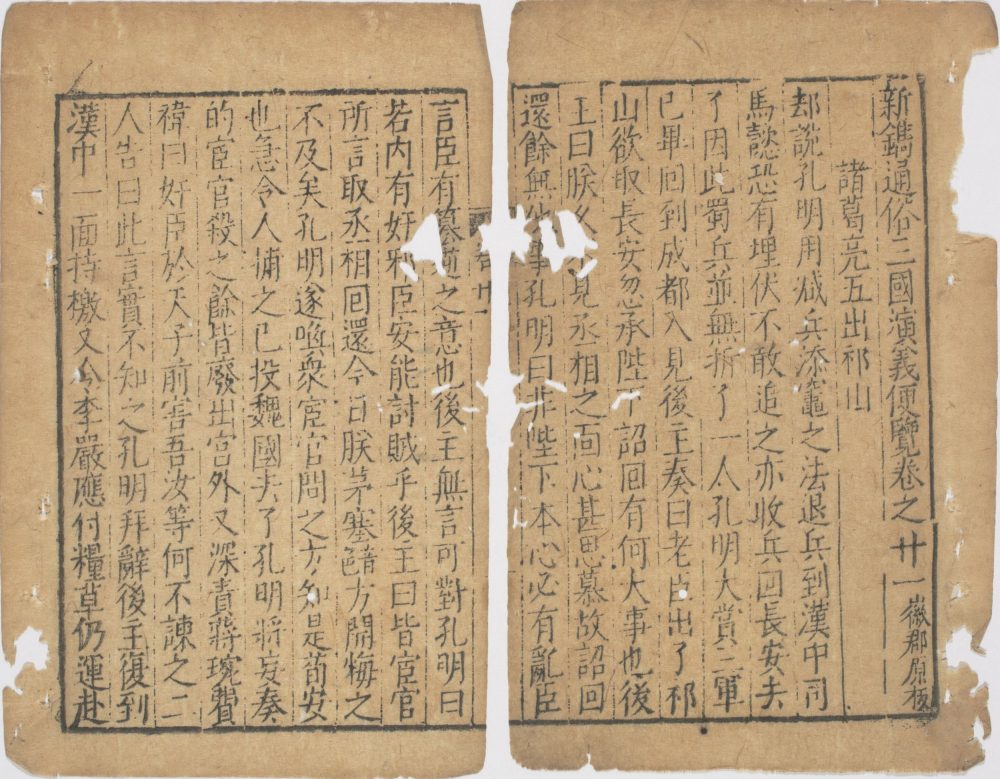 新鐫通俗三國演義便覽卷之廿一 徽郡原板
諸葛亮五出祁山
却說孔明用减兵添竈之法退兵到漢中司
馬懿恐有埋伏不敢追之亦收兵回長安去
了因此蜀兵並無折了一人孔明大賞三軍
已畢回到成都入見後主奏曰老臣出了祁
山欲取長安忽承陛下詔回有何大事也後
主曰朕久 見丞相之面心甚思慕故詔回
還餘無 事孔明曰非陛下本心必有亂臣
言臣有 之意也後王無言可對孔明曰
若内有奸邪臣安能討賊乎後王曰皆宦官
所言取丞相回還今日朕茅塞 方開悔之
不及矣孔明遂喚衆宦官問之方知是苟安
也急令人捕之已投魏國去了孔明將妄奏
的宦官殺之餘皆廢出宮外又深責蔣琬費
禕曰奸臣於天子前害吾汝等何不諫之二
人告曰此言實不知之孔明拜辭後主復到
漢中一面持檄又令李嚴應付糧草仍運赴
廿一